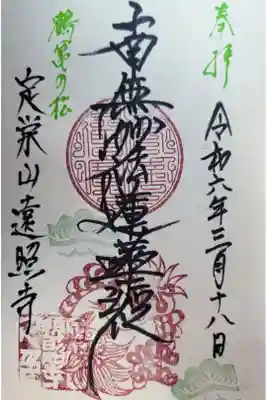 奉拝
令和六年三月十八日
南無妙法蓮華経
鶴亀の松
定栄山遠照寺